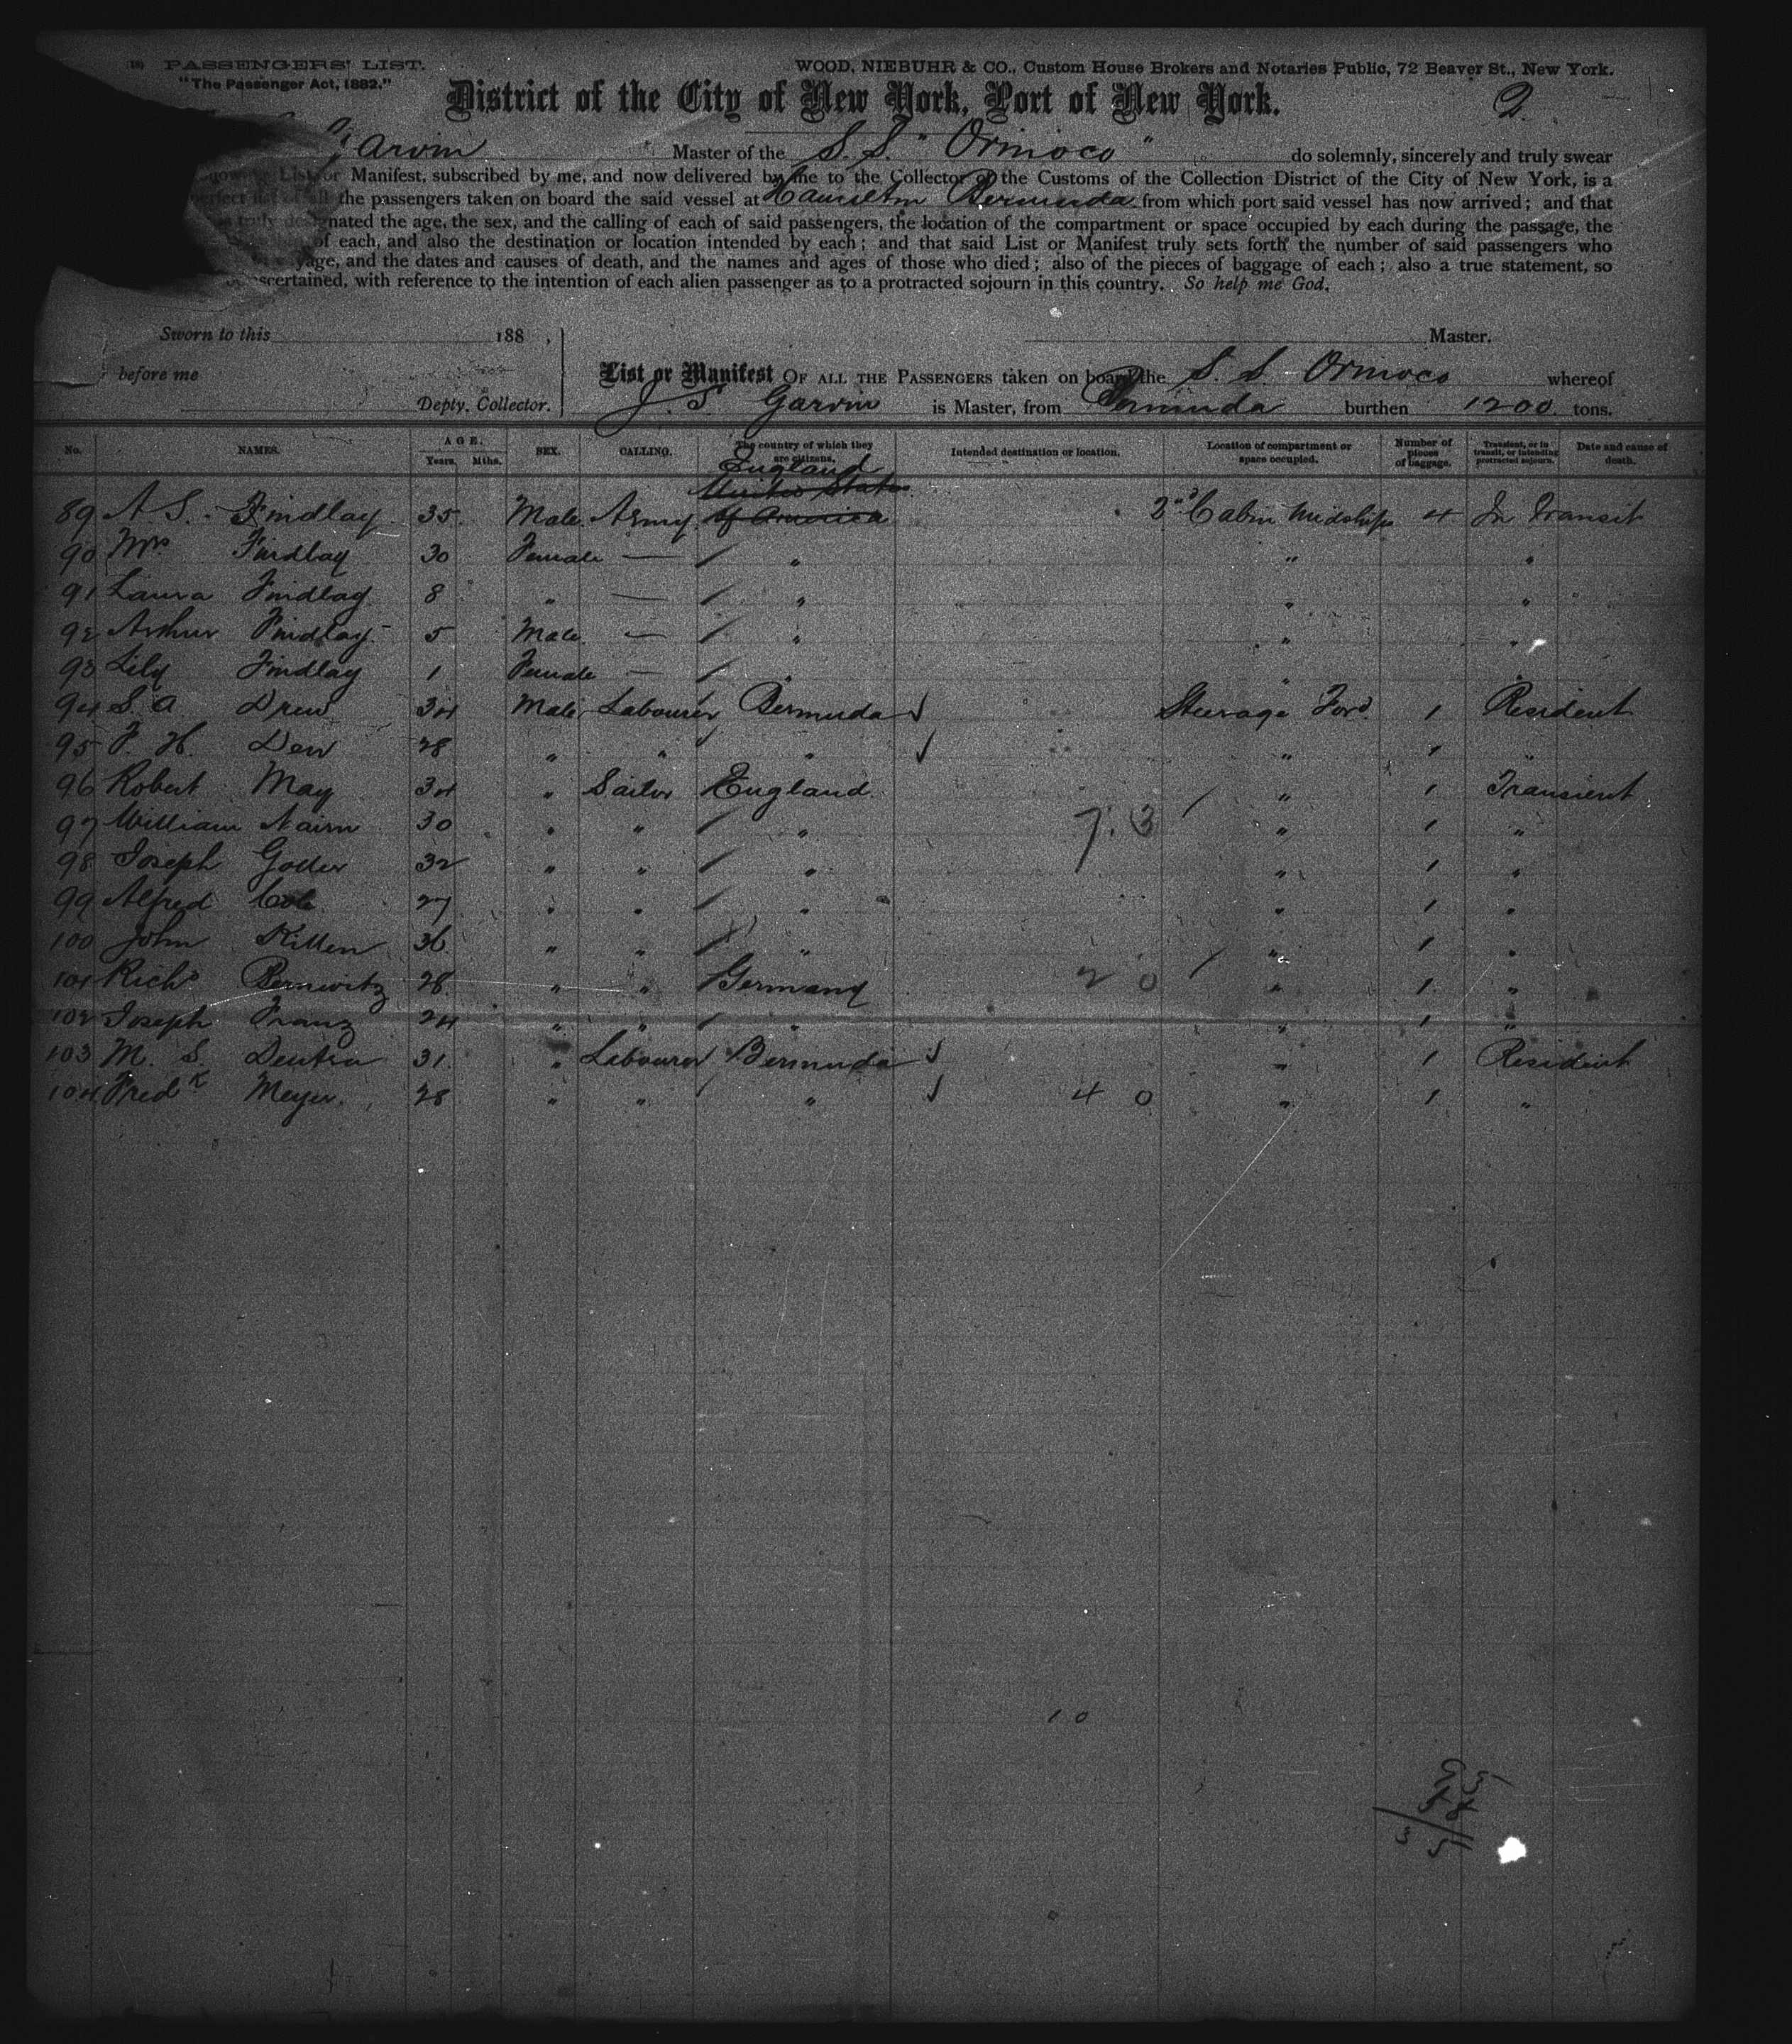 (18) PASSENGERS' LIST. WOOD, NIEBUHR & CO., Custom House Brokers and Notaries Public, 72 Beaver St., New York.
"The Passenger Act, 1882."
District of the City of New York, Port of New York. 2.
Garvin Master of the S. S. "Orinoco" do solemnly, sincerely and truly swear
List or Manifest, subscribed by me, and now delivered by me to the Collector of the Customs of the Collection District of the City of New York, is a
perfect list of all the passengers taken on board the said vessel at Hamilton Bermuda from which port said vessel has now arrived; and that
truly designated the age, the sex, and the calling of each of said passengers, the location of the compartment or space occupied by each during the passage, the
of each, and also the destination or location intended by each; and that said List or Manifest truly sets forth the number of said passengers who
and the dates and causes of death, and the names and ages of those who died; also of the pieces of baggage of each; also a true statement, so
ascertained, with reference to the intention of each alien passenger as to a protracted sojourn in this country. So help me God.
Sworn to this 188 , Master.
before me List or Manifest OF ALL THE PASSENGERS taken on board the S. S. Orinoco whereof
Depty. Collector. J. S. Garvin is Master, from Bermuda burthen 1200 tons.
No. NAMES. AGE. Years. Mths. SEX. CALLING. The country of which they are citizens. Intended destination or location. Location of compartment or space occupied. Number of pieces of baggage. Transient, or in transit, or intending protracted sojourn. Date and cause of death.
England
United States
89 A. S. Findlay 35 Male Army of America 2nd Cabin Midships 4 In Transit
90 Mrs Findlay 30 Female — " " "
91 Laura Findlay 8 " — " " "
92 Arthur Findlay 5 Male — " " "
93 Lily Findlay 1 Female — " " "
94 S. A. Drew 34 Male Labourer Bermuda Steerage Ford 1 Resident
95 F. H. Dew 28 " " " " 1 "
96 Robert May 34 " Sailor England " 1 Transient
97 William Nairn 30 " " " 7. 3 " 1 "
98 Joseph 32 " " " " 1 "
99 Alfred Cole 27 " " " " 1 "
100 John Kitten 36 " " " " 1 "
101 Richd Bernwitz 28 " " Germany 2 0 " 1 "
102 Joseph Franz 24 " " " " 1 "
103 M. S. Deutra 31 " Labourer Bermuda " 1 Resident
104 Fredk Meyer 28 " " " 4 0 " 1 "
10